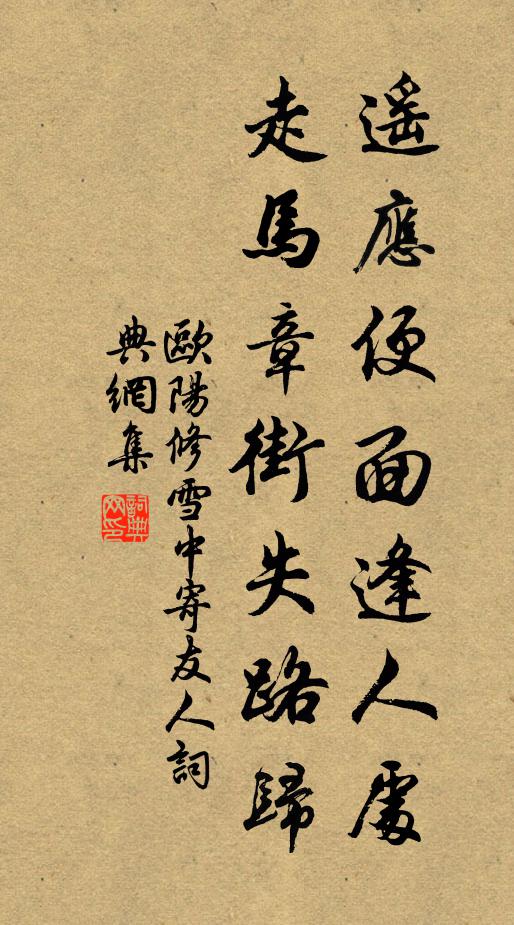 遥應便面逢人處
走馬章街失路歸
歐陽修雪中寄友人詞
典網集
詞典
网印